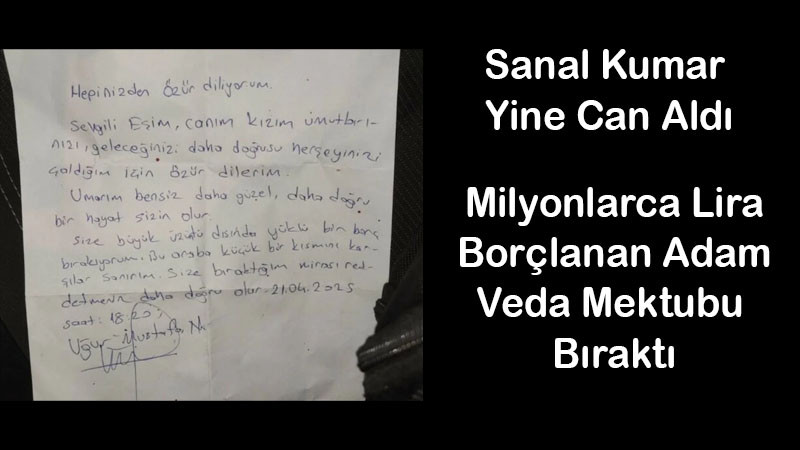 Hepinizden özür diliyorum.
Sevgili Eşim, canım kızım umutları-
nızı, geleceğinizi daha doğrusu herşeyinizi
çaldığım için özür dilerim.
Umarım bensiz daha güzel, daha doğru
bir hayat sizin olur.
Size büyük üzüntü dışında yüklü bir borç
bırakıyorum. Bu araba küçük bir kısmını kar-
şılar sanırım. Size bıraktığım mirası red-
detmeniz daha doğru olur. 21.04.2025
saat: 18:20
Uğur Mustafa
Sanal Kumar
Yine Can Aldı
Milyonlarca Lira
Borçlanan Adam
Veda Mektubu
Bıraktı